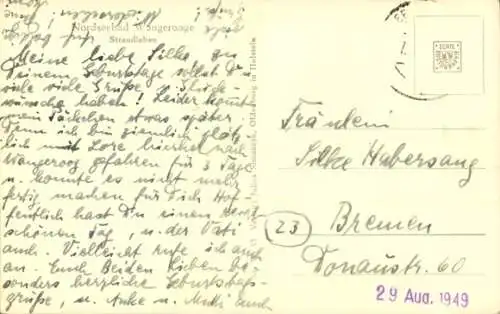 Nordseebad Wangerooge
Strandleben
Meine liebe Silke, zu
Deinem Geburtstage sollst Du
viele viele Grüße, Glück-
wünsche haben! Leider kommt
mein Päckchen etwas später
Denn ich bin ziemlich plötz-
lich mit Lore hierher nach
Wangeroog gefahren für 3 Tage
u. konnte es nicht mehr
fertig machen für Dich Hof-
fentlich hast Du einen
schönen Tag, u. der Vati
auch. Vielleicht rufe ich auch
an. Euch Beiden lieben be-
sonders herzliche Geburtstags-
grüße, u. Anke u. Mutti auch
ECHTE
Fräulein
Silke Habersang
23
Bremen
Donaustr. 60
29 Aug. 1949